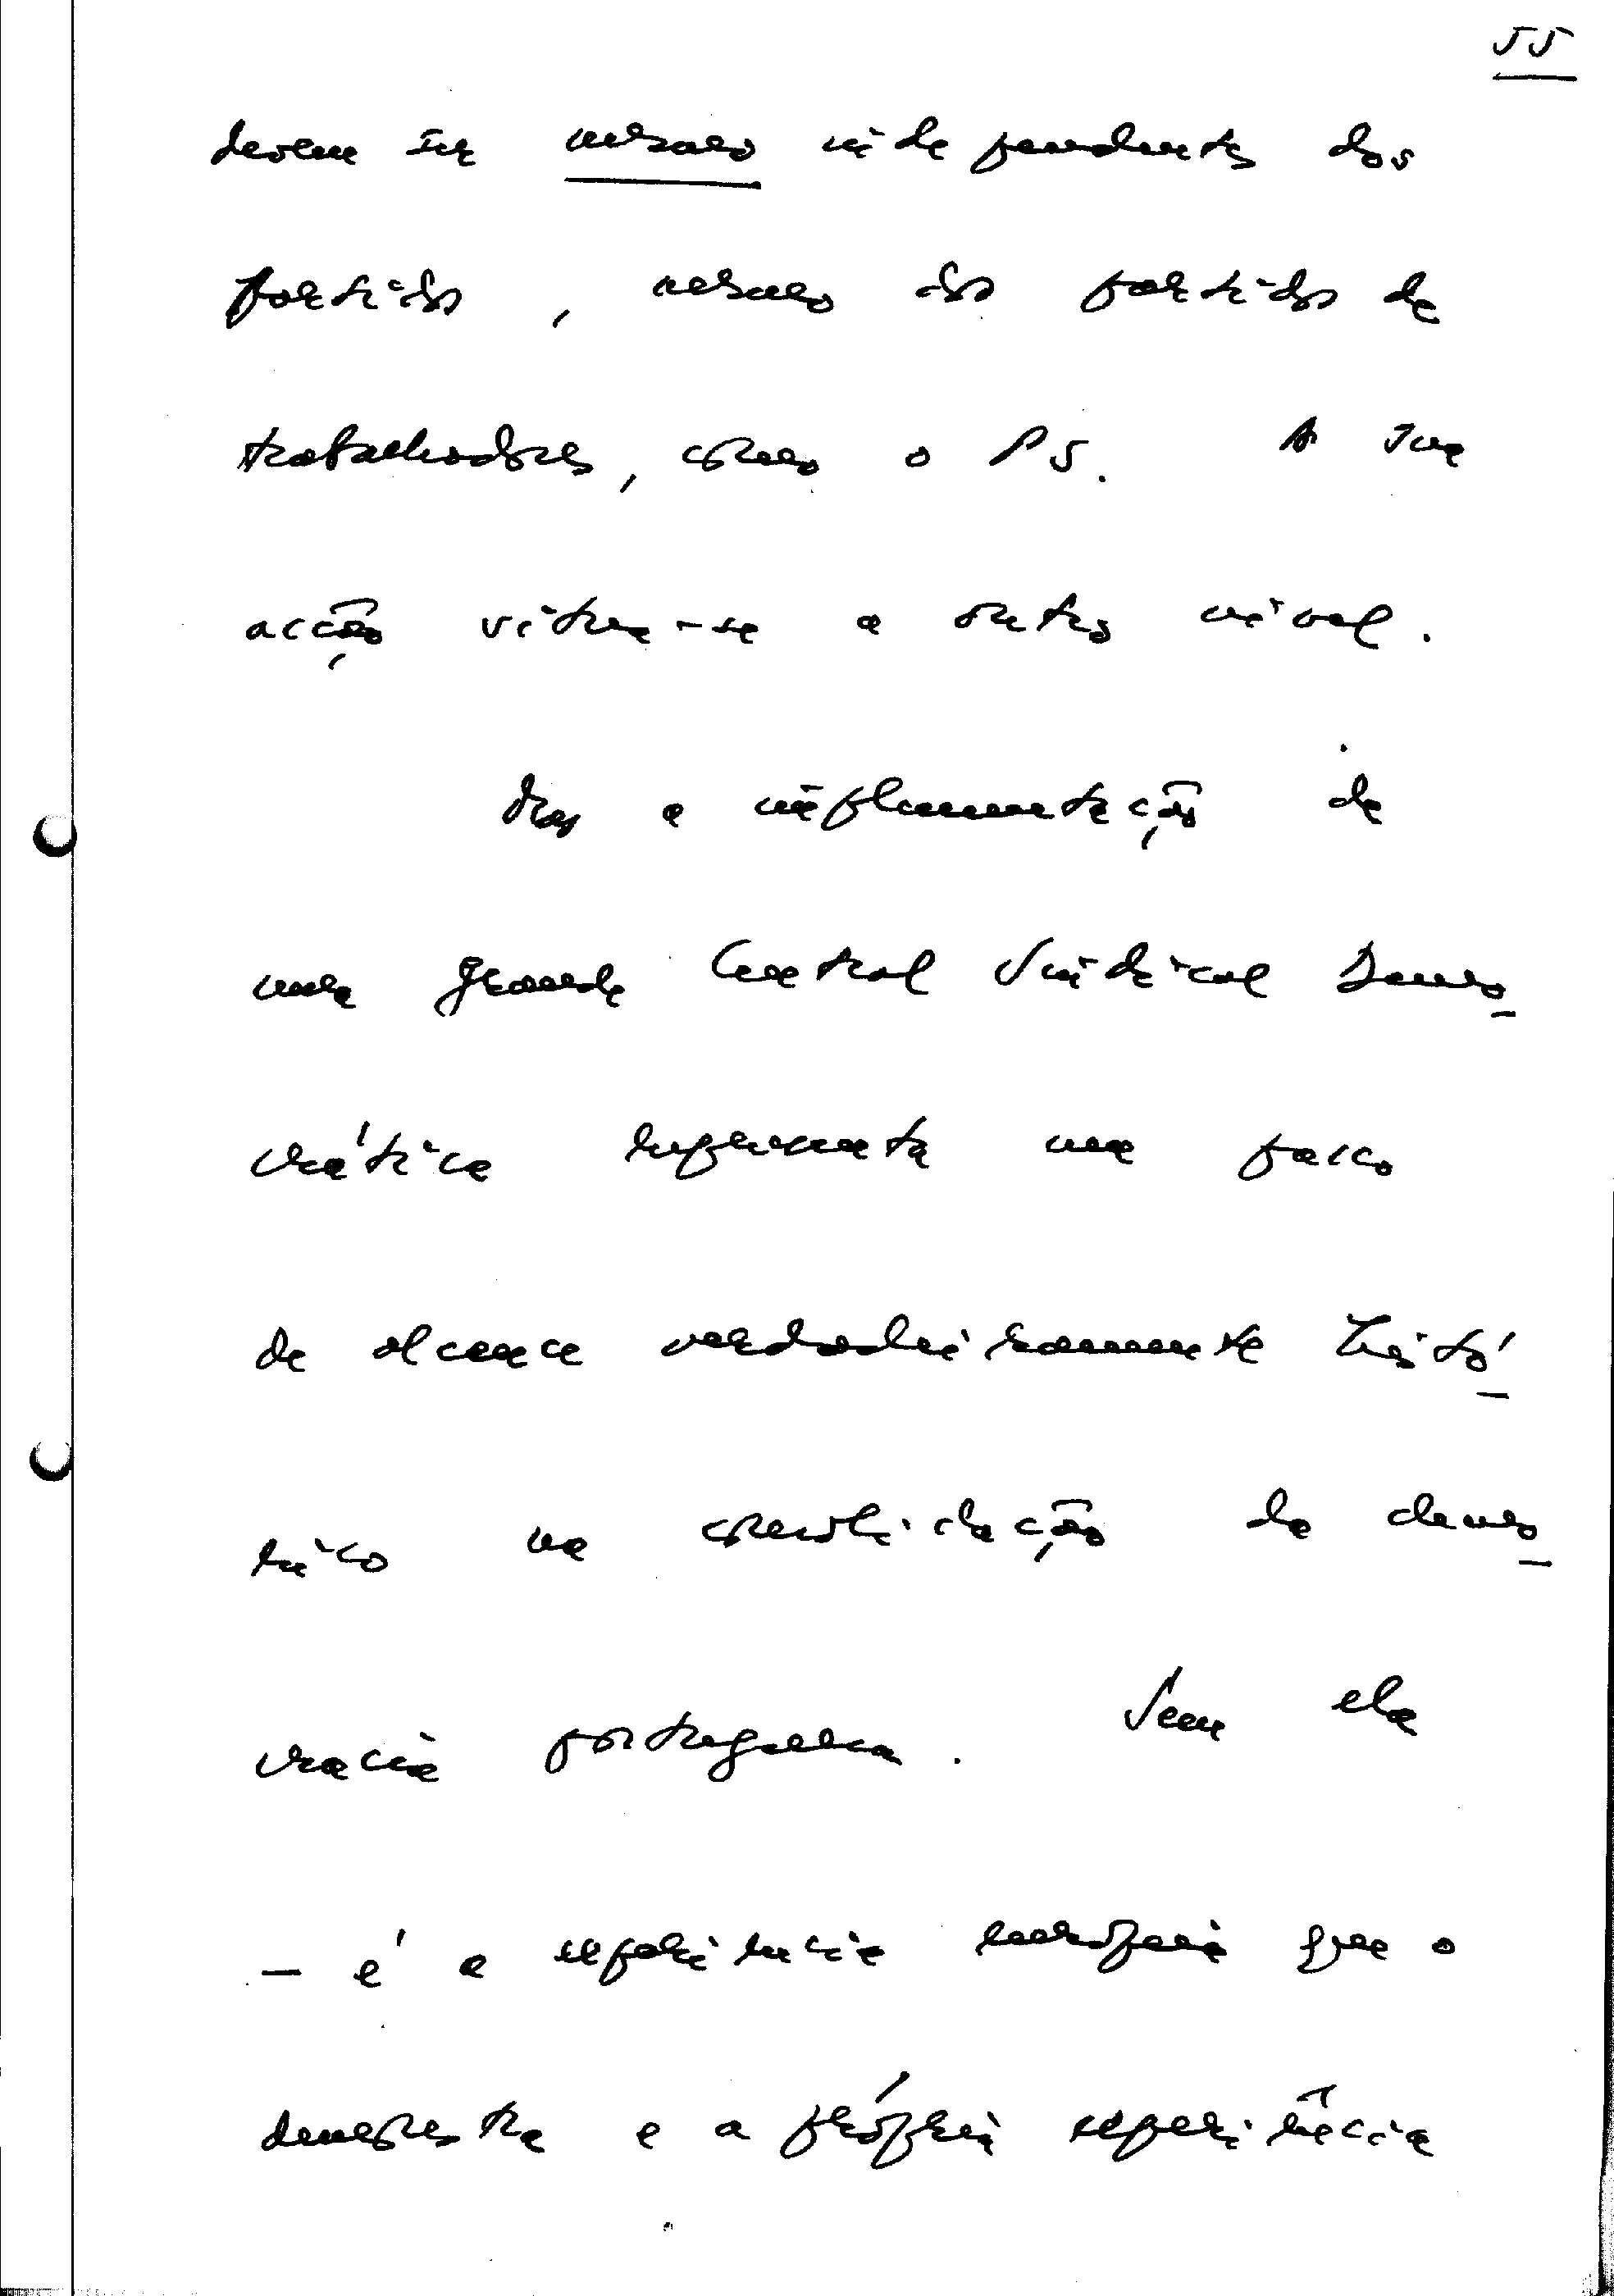 55
devem ser mesmo independentes dos
partidos, mesmo dos partidos de
trabalhadores, como o PS. A sua
acção situa-se a outro nível.
Mas a implementação de
uma grande Central Sindical Demo-
crática representa um passo
de alcance verdadeiramente histó-
rico na consolidação da demo-
cracia portuguesa. Sem ela
- é a experiência europeia que o
demonstra e a própria experiência